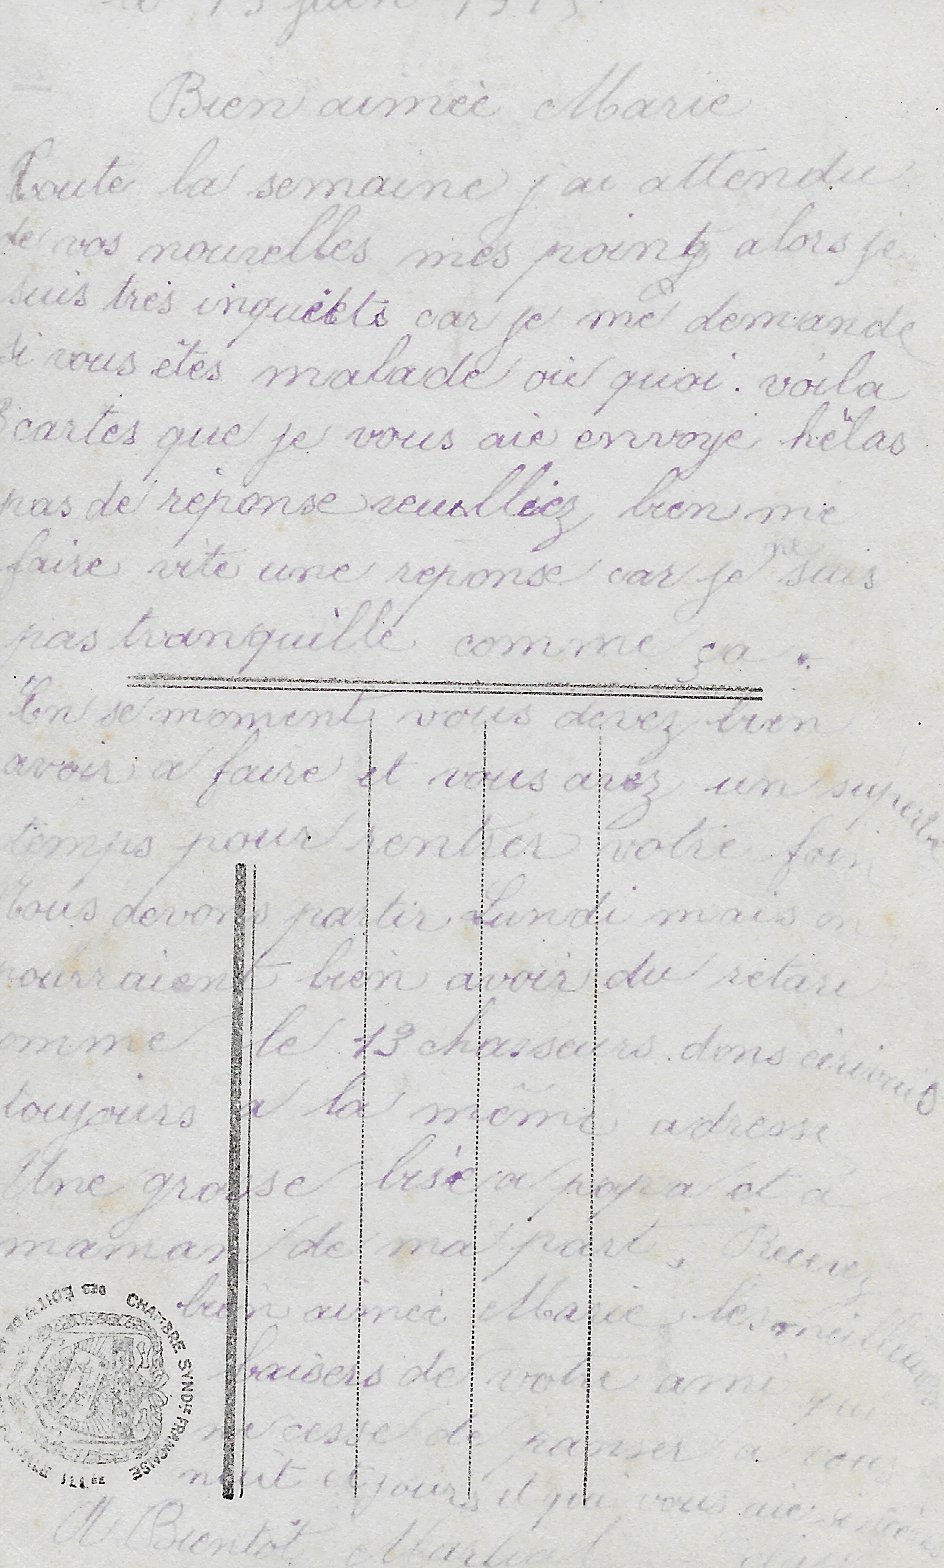 le 13 juin 1915
Bien aimée Marie
Toute la semaine j ai attendu
de vos nouvelles mes point alors je
suis très inquièts car je me demande
si vous êtes malade ou quoi. voila
3 cartes que je vous aie envoyé hélas
pas de réponse veuilliez bien me
faire vite une reponse car je ne suis
pas tranquille comme ça.
En se moment vous devez bien
avoir a faire et vous avez un superbe
temps pour rentrer votre foin
Nous devons partir Lundi mais on
pourraient bien avoir du retard
comme le 13 chasseurs. dons
toujours a la même adresse
Une grosse bise a papa et a
maman de ma part, Recevez
bien aimée Marie les meilleurs
baisers de votre ami qui
ne cesse de panser a vous
nuit et jours et qui vous aie
A Bientôt Martial
CHAMBRE SYNDle FRANÇAISE